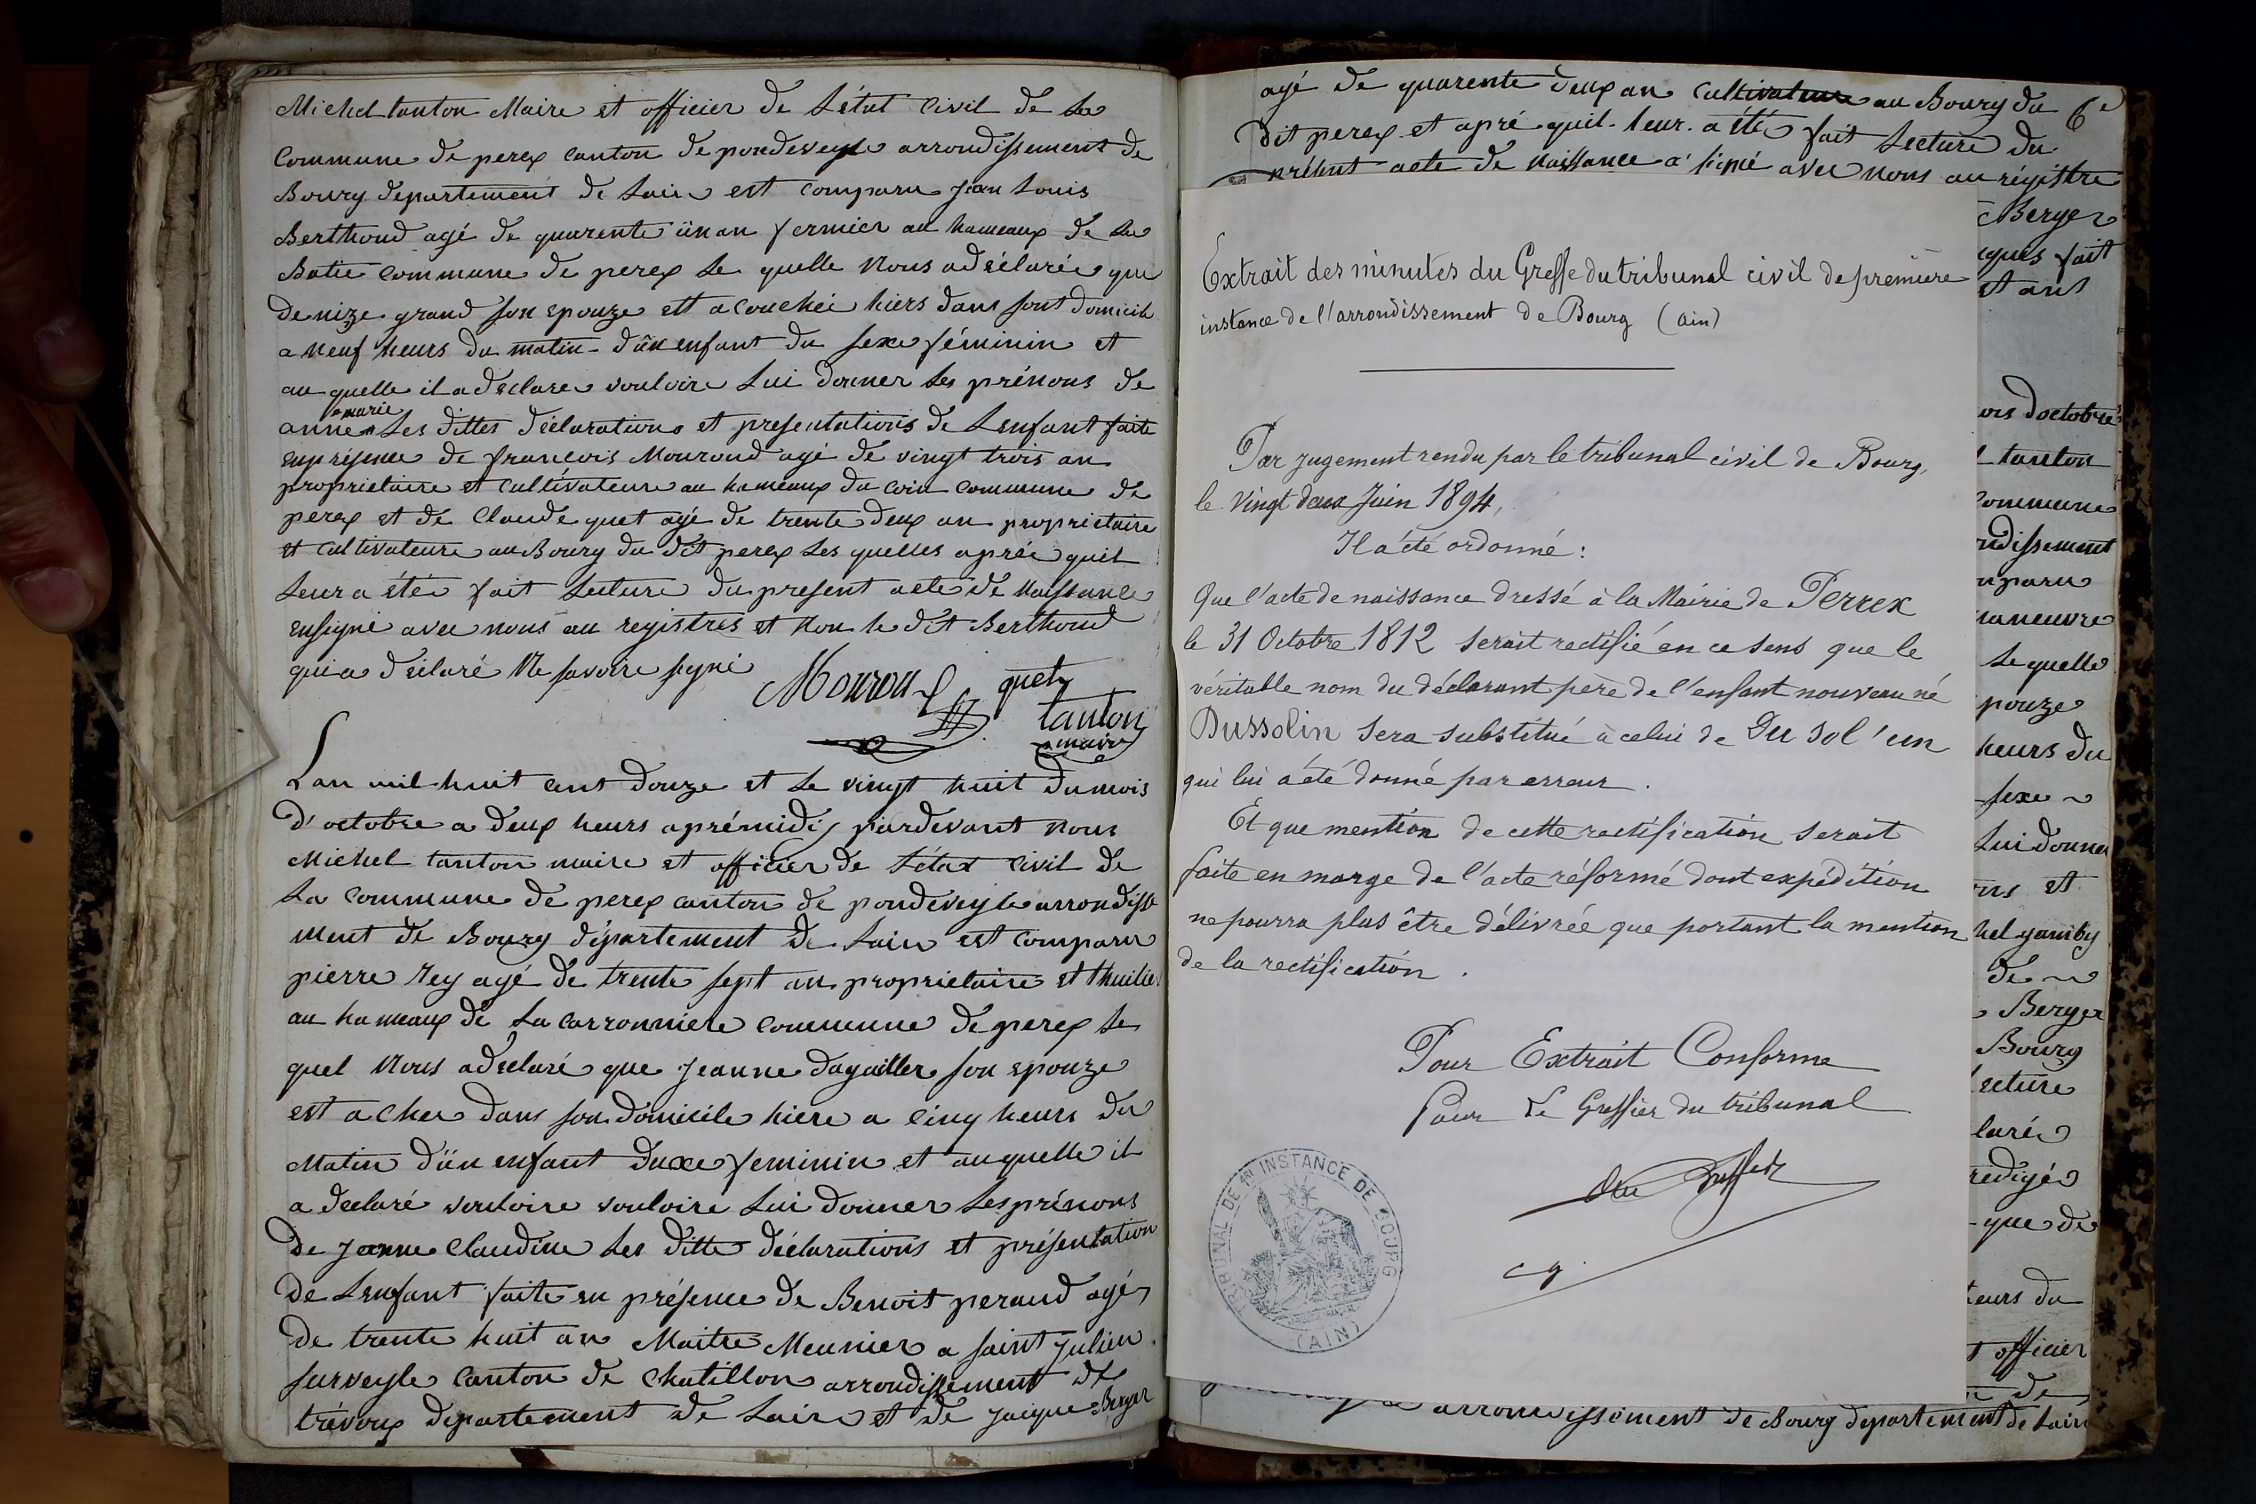 Michel tanton Maire et officier de L'état Civil de La
Commune de perex canton de pondeveyle arrondissement de
Bourg departement de Lain est comparu jean Louis
Berthoud agé de quarente ün an fermier au hameaux de La
Batie commune de perex Le quelle nous adéclarée que
denize grand son epouze est acouchée hiers dans sont domicile
a neuf heurs du matin d'ün enfant du sexe féminin et
au quelle il adeclare vouloire Lui donner Les prénons de
marie
anne Les dittes déclarations et presentations de Lenfant faite
enpresence de francois Mouroud agé de vingt trois an
proprietaire et cultivateure au hameaux du coin commune de
perex et de Claude quet agé de trente deux an proprietaire
et cultivateure au Bourg du dit perex Les quelles aprée quil
Leur a étée fait Lecture du present acte de naissance
ensigné avec nous au registres et non le dit Berthoud
qui a déclaré Ne savoire signé
Mouroux quet
tanton
maire
Lan mil huit cent douze et Le vingt huit du mois
d'octobre a deux heurs aprémidy pardevant nous
Michel tanton maire et officier de L'état Civil de
La commune de perex canton de pondeveyle arrondisse
ment de Bourg département de Lain est comparu
pierre rey agé de trente sept an proprietaire et thuilie
au hameaux de La carronniere commune de perex Le
quel nous adeclaré que jeanne dagailler son epouze
est a cher dans son domicile hiere a cinq heurs du
Matin d'ün enfant duxe feminin et auquelle il
a declaré vouloire vouloire Lui donner Les prénons
de jeanne Claudine Les ditte déclarations et présentation
de Lenfant faite en présence de Benoit peraud agé
de trente huit an Maitre Meunier a saint julien
surveyle Canton de Chatillon arrondissement de
trévoux departement de Lain et de jacque Berger
agé de quarente deux an cultivateure au Bourg du 6e
dit perex et apré quil leur a étée fait Lecture du
présent acte de naissance a signé avec nous au régistre
Extrait des minutes du Greffe du tribunal civil de première
instance de l'arrondissement de Bourg (Ain)
Par jugement rendu par le tribunal civil de Bourg,
le vingt deux Juin 1894,
Il a été ordonné:
Que l'acte de naissance dressé à la Mairie de Perrex
le 31 Octobre 1812 serait rectifié en ce sens que le
véritable nom du déclarant père de l'enfant nouveau né
Dussolin sera substitué à celui de Du sol'un
qui lui a été donné par erreur.
Et que mention de cette rectification serait
faite en marge de l'acte réformé dont expédition
ne pourra plus être délivrée que portant la mention
de la rectification.
Pour Extrait Conforme
Pour Le Greffier du tribunal
cg.
TRIBUNAL DE 1RE INSTANCE DE BOURG
(AIN)
Berger
ques fait
et ans
ois doctobre
tanton
commune
ondissement
mparu
maneuvre
Le quelle
pouze
heurs du
sexe
Lui donner
ns et
hel gamby
de
Berger
Bourg
Lecture
laré
redigé
que de
heurs du
t officier
de
arrondissement de Bourg departement de Lain